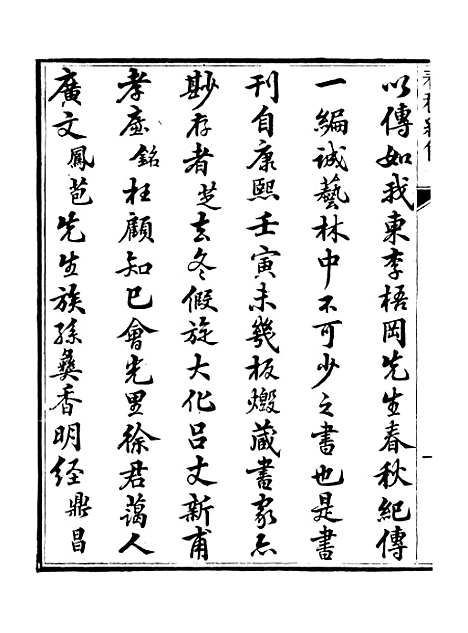 春秋紀傳
一
以傳如我東李梧岡先生春秋紀傳
一編誠藝林中不可少之書也是書
刊自康熙壬寅未幾板燬藏書家亦
尟存者芝去冬假旋大化呂丈新甫
孝廉銘枉顧知已會先里徐君藹人
廣文鳳苞先生族孫彝香明經鼎昌